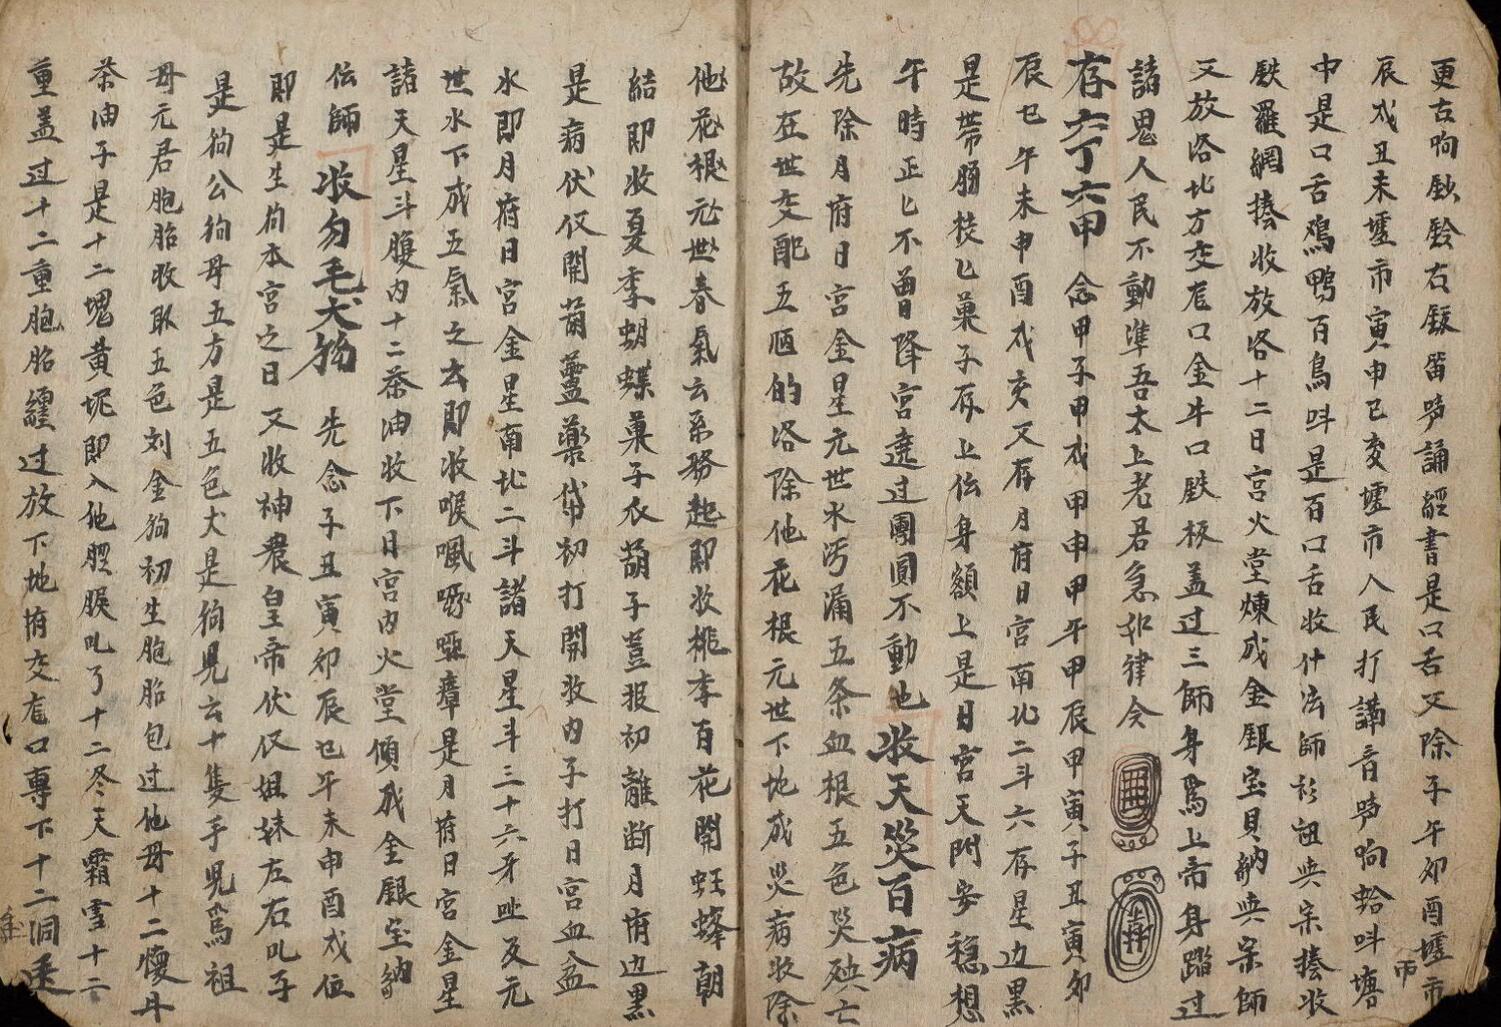 更古响鈔鈴右鈸笛唦誦經書是口舌又除子午卯酉墟市
辰戌丑未墟市寅申巳亥墟市人民打講音唦响蛤呌塘
中是口舌鴉鴨百鳥呌是百口舌收什法師衫詔共宗㨢收
鉄羅網㨢收放洛十二日宮火堂煉成金銀宝貝納共宗師
又放洛北方交㡯口金牛口鉄板盖过三師身爲上帝身踏过
諸鬼人民不動準吾太上老君急如律令
存六丁六甲 念甲子甲戌甲申甲午甲辰甲寅子丑寅卯
辰巳午未申酉戌亥又存月府日宮南北二斗六存星边黒
是帶腸枝匕菓子存上伝身額上是日宮天門安穏想
午時正匕不曾降宮遶过團圓不動也 收天災百病
先除月府日宮金星元世水污漏五条血根五色災殃亡
故在世交配五瘟的洛除他花根元世下地成災病收除
他花根元世春氣云系務起即收桃李百花開蚟蜂朝
結即收夏季蝴蝶菓子衣葫子荳报初離断月府边黒
是病伏仅開葫蘆藥帒初打開收内子打日宮血盆
水即月府日宮金星南北二斗諸天星斗三十六牙吪及元
世水下成五氣之去即收喉㗙啄啞瘴是月府日宮金星
諸天星斗腹内十二茶油收下日宮内火堂傾成金銀宝納
伝師 收勿毛犬狗 先念子丑寅卯辰巳午未申酉戌位
即是生狗本宮之日 又收神農皇帝伏仅姐妹左右吼子
是狗公狗母五方是五色犬是狗児云十隻手児爲祖
母元君胞胎收取五色刘金狗初生胞胎包过他母十二懷斗
茶油子是十二塊黄坭即入他腔腺吼了十二冬天霜雪十二
重盖过十二重胞胎纏过放下地府交㡯口專下十二洞